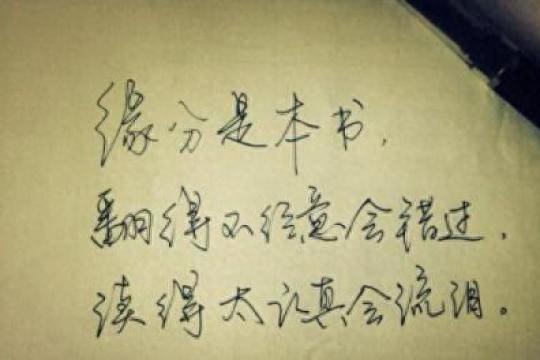 缘分是本书,
翻得不经意会错过,
读得太认真会流泪。